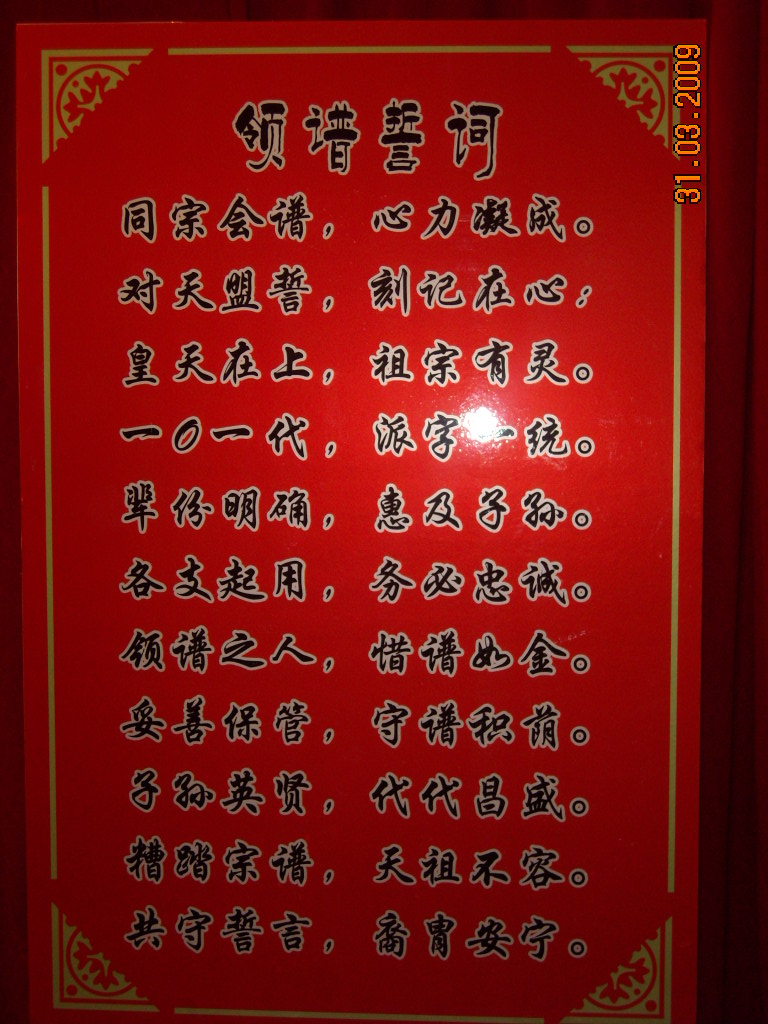 领谱誓词
同宗会谱，心力凝成。
对天盟誓，刻记在心；
皇天在上，祖宗有灵。
一0一代，派字一统。
辈份明确，惠及子孙。
各支起用，务必忠诚。
领谱之人，惜谱如金。
妥善保管，守谱积荫。
子孙英贤，代代昌盛。
糟踏宗谱，天祖不容。
共守誓言，裔胄安宁。
31.03.2009